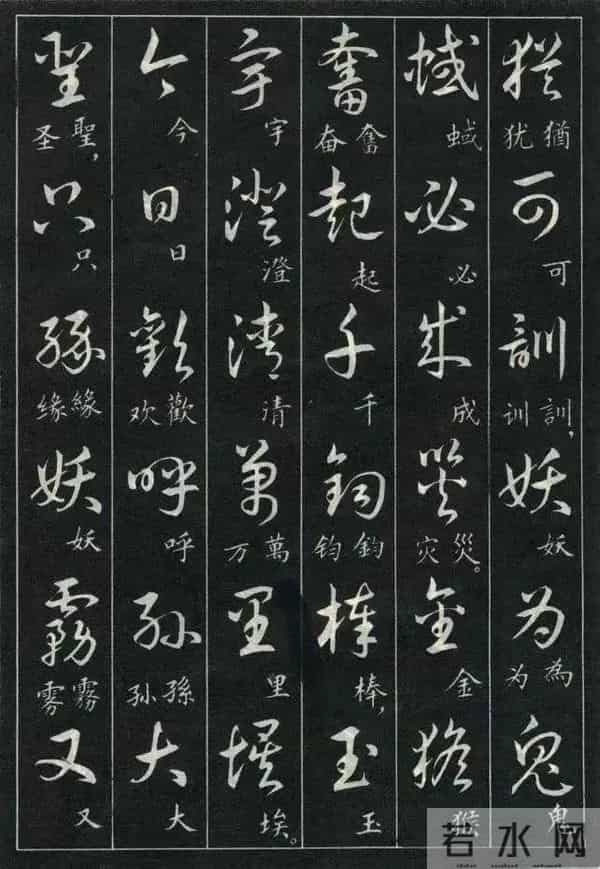 猶可訓妖为鬼
猶犹 可 訓,训 妖 為为 鬼
蜮必成災金猴
蜮 必 成 災。灾 金 猴
奮起千鈞棒玉
奮奋 起 千 鈞钧 棒, 玉
宇澄清萬里埃
宇 澄 清 萬万 里 埃。
今日歡呼孫大
今 日 歡欢 呼 孫孙 大
聖只緣妖霧又
聖,圣 只 緣缘 妖 霧雾 又
若水网